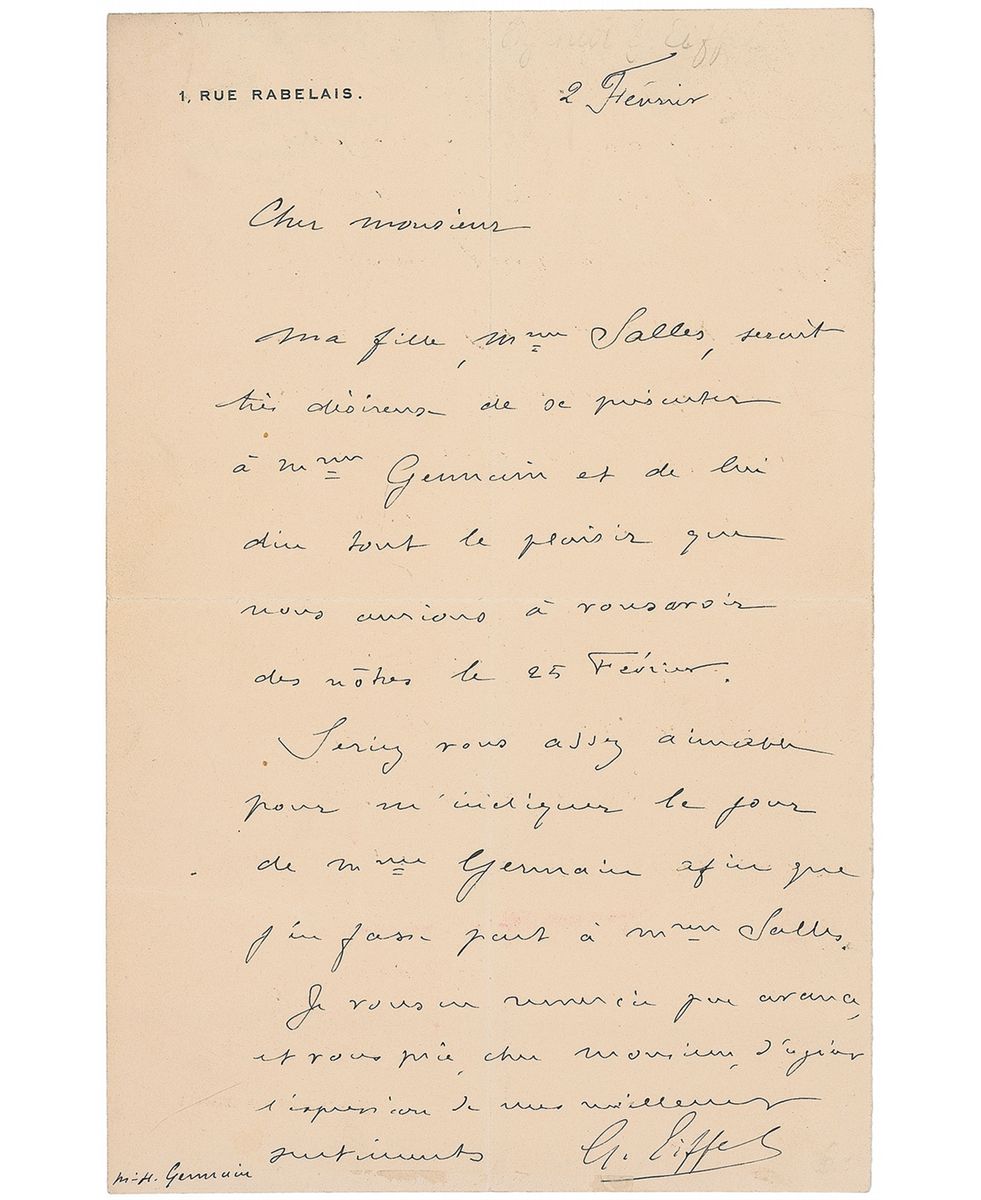 1, RUE RABELAIS.
2 Février
Cher monsieur
Ma fille, Mme Salles, serait
très désireuse de se présenter
à Mme Germain et de lui
dire tout le plaisir que
nous aurions à vous avoir
des nôtres le 25 Février.
Seriez vous assez aimable
pour m'indiquer le jour
de Mme Germain afin que
j'en fasse part à Mme Salles.
Je vous en remercie par avance,
et vous prie, cher monsieur, d'agréer
l'expression de mes meilleurs
sentiments
G. Eiffel
M-H. Germain